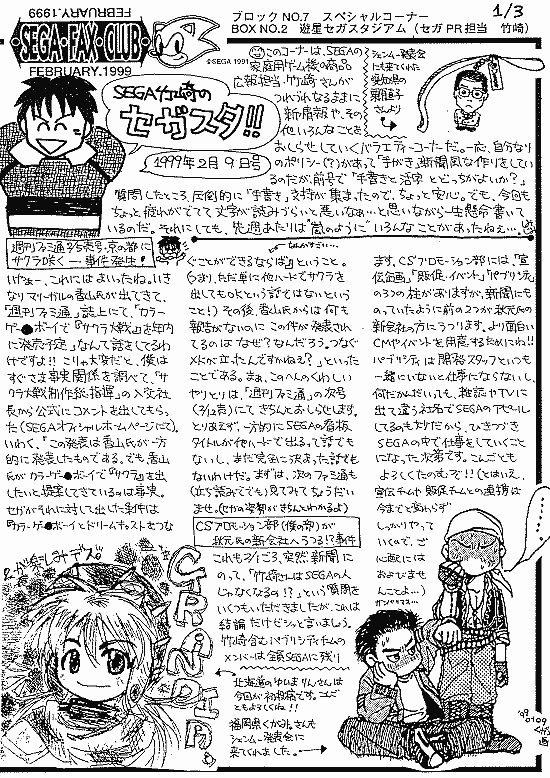 SEGA・FAX・CLUB
FEBRUARY.1999
FEBRUARY.1999
©SEGA 1991
ブロックNO.7　スペシャルコーナー
BOX NO.2　遊星セガスタジアム（セガPR担当　竹崎）
1/3
SEGA竹崎の
セガスタ!!
1999年2月9日号
このコーナーは、SEGAの
家庭用ゲーム機の商品
広報担当・竹崎さんが
つれづれなるままに
新情報や、その
他いろんなことを
おしらせしていくバラエティーコーナーだ。一応、自分なり
のポリシー(?)があって「手がき」新聞風な作りをしてい
るのだが、前号で「手書きと活字とどっちがよいか?」
質問したところ、圧倒的に「手書き」支持が集まったので、ちょっと安心。でも、今回も
ちょっと疲れがでてて文字が読みづらいと悪いなぁ…と思いながら一生懸命書いて
いるのだ。それにしても、先週あたりは"嵐のように"いろんなことがあったねぇ…
シェンムー発表会
に来てくれた
愛知県の
さんより
週刊ファミ通
サクラ咲く…事件発生!
いやぁー、これにはまいったね。いき
なりマリーガルの香山氏が出てきて、
「週刊ファミ通」誌上にて、「カラー
ゲー●ボーイで『サクラ大戦』を年内
に発売予定」なんて話をしてるわ
けですよ!! こりゃ大変だと、僕は
すぐさま事実関係を調べて、「サ
クラ大戦制作総指揮」の入交社
長から公式にコメントを出してもらっ
た(SEGAオフィシャルホームページにて)。
いわく、「この発表は香山氏が一方
的に発表したものである。でも、香山
氏がカラーゲー●ボーイで『サクラ』を出
したいと提案してきているのは事実。
セガがそれに対して出した条件は
『カラーゲー●ボーイとドリームキャストをつな
ぐことができるならば』ということ。
つまり、ただ単に他ハードでサクラを
出してもOKという話ではないという
こと!) その後、香山氏からは何も
報告がないのにこの件が発表され
てるのはなぜ?なんだろう。つなぐ
メドが立ったんですかねぇ?」といった
ことである。まぁ、このへんのくわしい
やりとりは、「週刊ファミ通」の次号
にてきちんとおしらせします。
とりあえず、一方的にSEGAの看板
タイトルが他ハードで出るって話でも
ないし、まだ完全に決まった話でも
ないわけだ。まずは、次のファミ通も
(立ち読みでも)見てみてちょうだい
ませ。
CSプロモーション部(僕の部)が
秋元氏の新会社へうつる!?事件
これもつい2/1ごろ、突然新聞に
のって、「竹崎さんはSEGAの人
じゃなくなるの!?」という質問を
いくつもいただきましたが、これは
結論だけビシッと言いましょう。
竹崎含むパブリシティチームの
メンバーは全員SEGAに残り
ます。CSプロモーション部には、「宣
伝企画」、「販促・イベント」、「パブリシティ」
の3つの柱がありますが、新聞にも
のっていたように前の2つが秋元氏の
新会社の方にうつります。より面白い
CMやイベントを用意するためにね!!
パブリシティは開発スタッフといつも
一緒にいないと仕事にならないし、
何だかんだいっても、雑誌やTVに
出て違う社名でSEGAのアピール
してるのもナンだから、ひきつづき
SEGAの中で仕事をしていくこと
になった次第です。こんごとも
よろしくたのむぞ!! (とはいえ、
宣伝チームや販促チームとの連携は
今までと変わらず
しっかりやって
いくので、ご
心配には
およびませ
んことよ…)
超楽しみデス。
GRANDIA
北海道のゆいまりんさんは
今回が初投稿です。こんご
ともよろしくね!!
シェンムー発表会に
来てくれました。
'99
0109